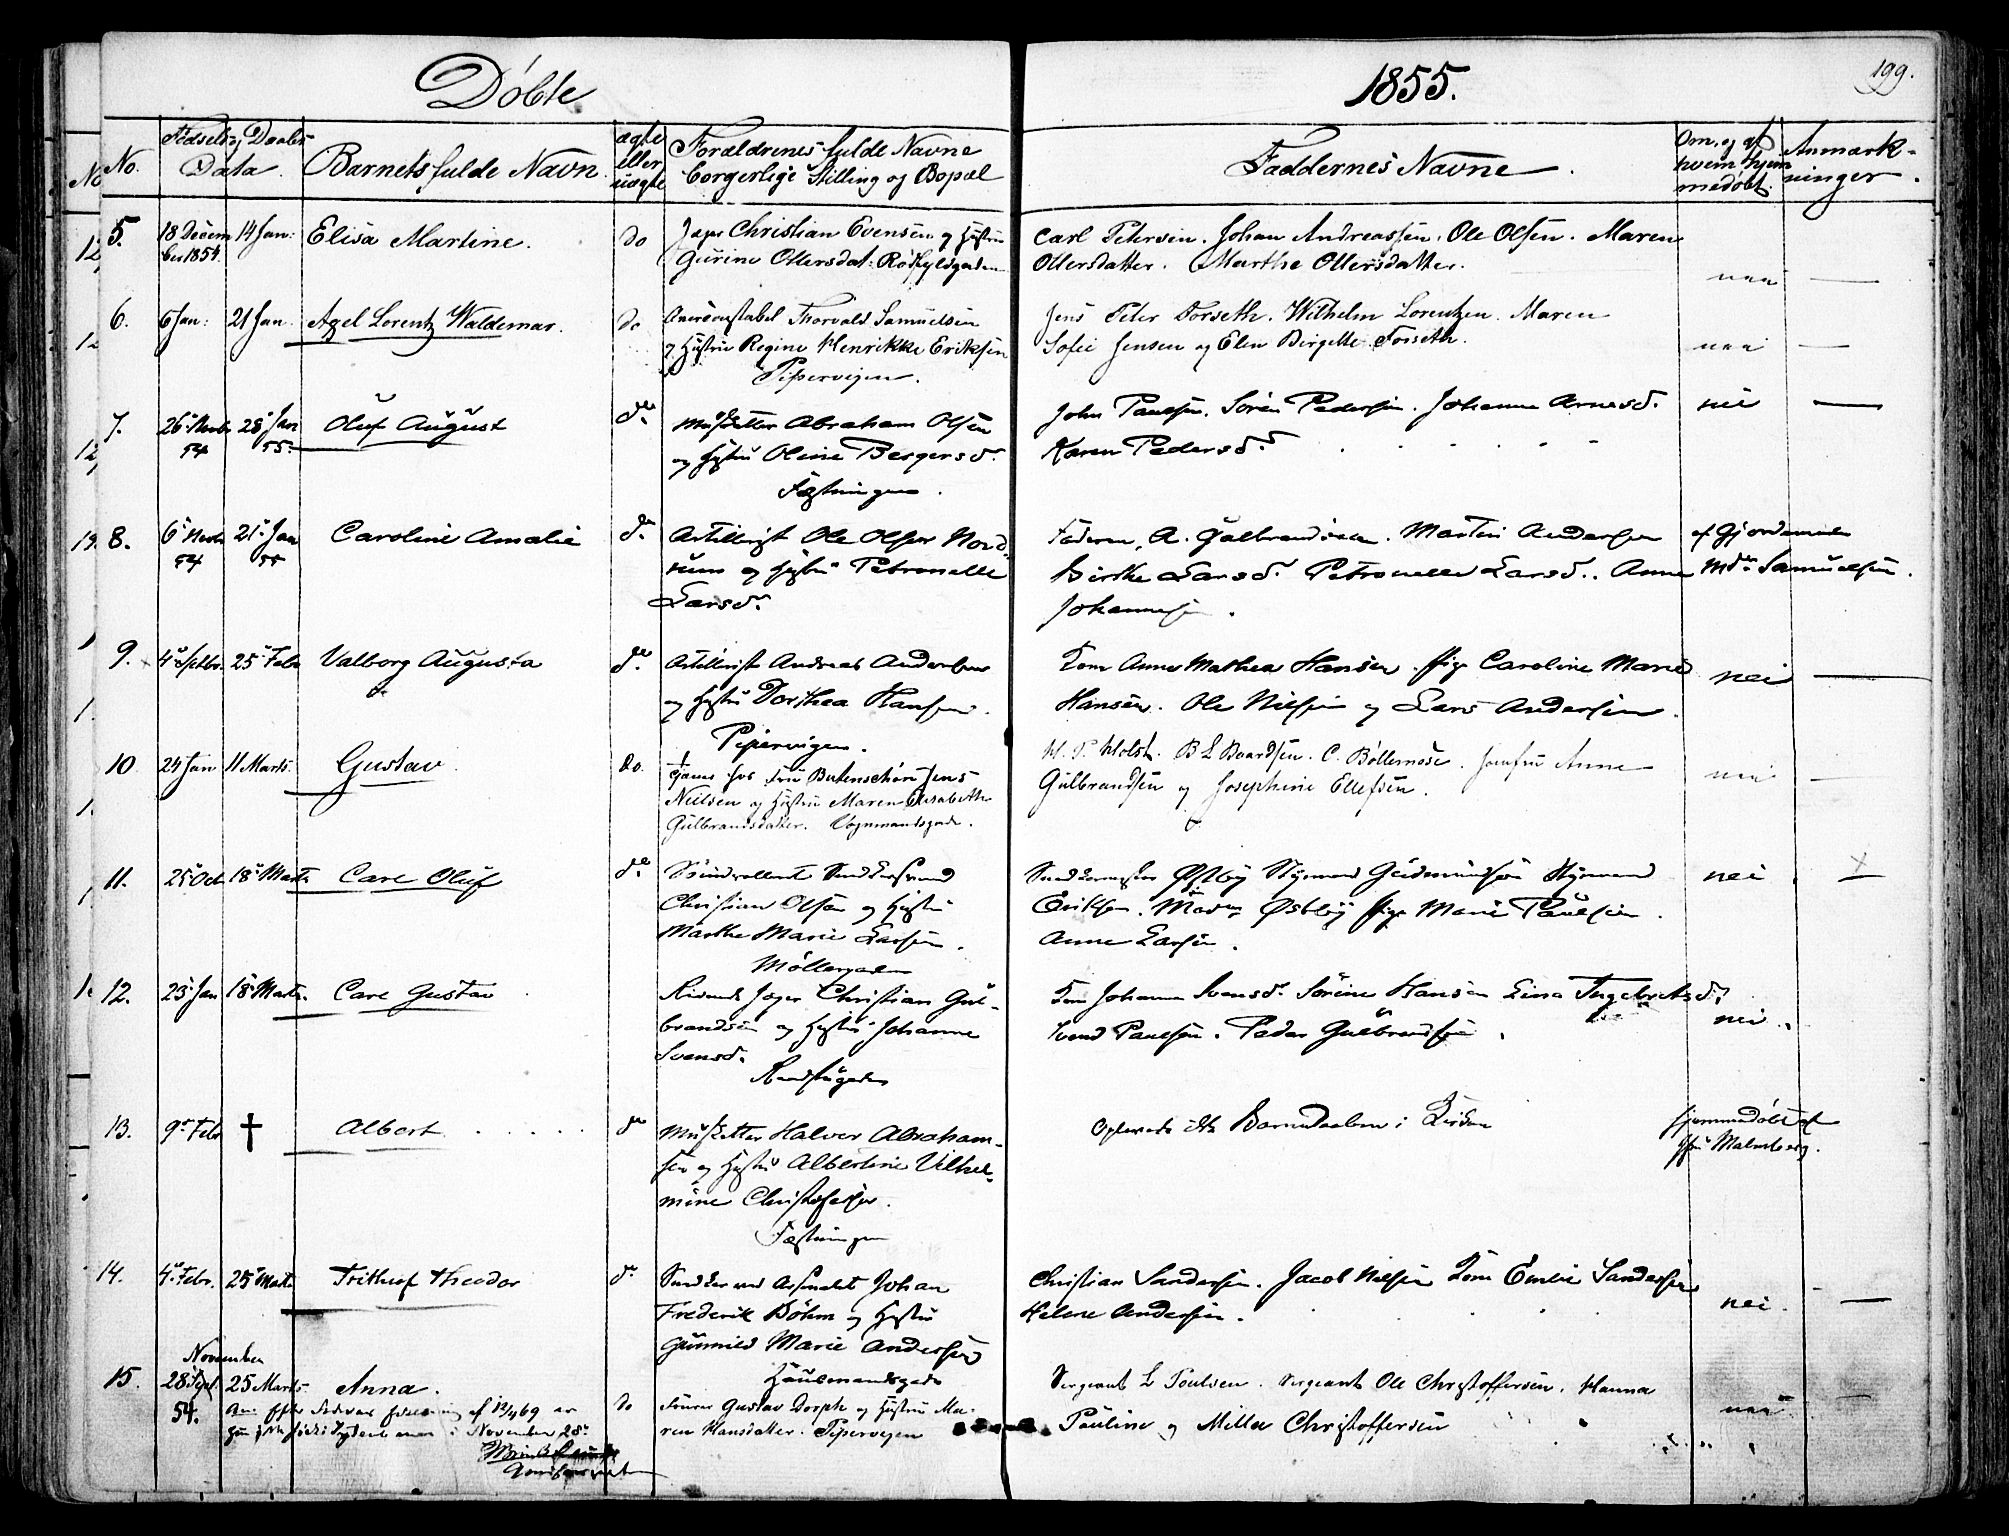 Döbte
1855.
199.
No.
Fødsels og Daabs
Data.
Barnets fulde Navn.
ægte
eller
uægte
Forældrenes fulde Navne
borgerlige Stilling og Bopæl
Faddernes Navne.
Om, og af
hvem hjem
medøbt.
Anmærk-
ninger.
5.
18 Decem
ber 1854.
14 Jan:
Elisa Martine.
do
Jæger Christian Evensen og Hustru
Gurine Ollersdat: Raadhusgaden
Carl Petersen. Johan Andreassen. Ole Olsen. Maren
Ollersdatter. Marthe Ollersdatter.
nei
6.
6 Jan:
21 Jan.
Axel Lorentz Waldemar.
do
Thorvald Samuelsen
og Hustru Regine Henrikke Eriksen
Pipervigen.
Jens Peter Forseth. Wilhelm Lorentzen. Maren
Sofie Jensen og Elen Birgette Forseth.
nei
7.
26 Novbr
54
28 Jan
55.
Oluf August
do
Musketter Abraham Olsen
og Hustru Oline Bergersd.
Fæstningen.
John Paulsen. Sören Pedersen. Johanne Arnesd.
Karen Pedersd.
nei
8.
6 Novbr
54
21 Jan
55
Caroline Amalie
do
Artillerist Ole Olsen Nord-
rum og Hustru Petronelle
Larsd.
Faderen, A. Gulbrandsen. Martin Andersen
Birthe Larsd. Petronelle Larsd. Anne
Johannesen.
af Gjordemoder
Md. Samuelsen.
9.
4 Septbr.
25 Febr
Valborg Augusta
do
Artillerist Andreas Andersen
og Hustru Dorthea Hansen.
Pipervigen.
Kone Anne Mathea Hansen. Pige Caroline Marie
Hansen. Ole Nielsen og Lars Andersen.
nei
10
24 Jan
11 Marts.
Gustav.
do.
Tjener hos Fru Butenschøn Jens
Nielsen og Hustru Maren Elisabeth
Gulbrandsdatter. Vognmandsgade.
H. P. Holst. B L Baardsen. C. Böllemose. Jomfru Anne
Gulbrandsen og Josephine Ellefsen.
nei
11.
25 Oct
18 Marts
Carl Oluf
do
Christian Olsen og Hustru
Marthe Marie Larsen.
Möllergaden
Østby Styrmand Gudmundsen Styrmand
Eriksen. Madm Østby Pige Marie Paulsen.
Anne Larsen.
nei.
12.
23 Jan
18 Marts.
Carl Gustav
Ridende Jæger Christian Gul-
brandsen og Hustru Johanne
Svensd.
Kone Johanne Svensd. Sörine Hansen Lina Ingebretsd.
Svend Paulsen. Peder Gulbrandsen.
nei.
13.
9 Febr
†
Albert
do
Musketter Halvor Abraham-
sen og Hustru Albertine Vilhel-
mine Christofersen.
Fæstningen
Oplevede ikke Barnedaaben i Kirken
hjemmedöbt af
Malmberg.
14.
4 Febr.
25 Marts
Frithiof Theodor
do
Johan
Frederik Böhm og Hustru
Gunnild Marie Andersen
Hausmandsgade
Christian Sandersen. Jacob Nielsen Kone Emilie Sandersen
Helene Andersen.
nei.
15.
November
28 Sept.
54.
25 Marts
Anna.
af 12/4 69 er
i November 28
do
Fourer Gustav Dorph og Hustru Ma-
ren Hansdatter. Pipervigen
Sergeant L Poulsen. Sergeant Ole Christoffersen. Hanna
Pauline og Milla Christoffersen
nei